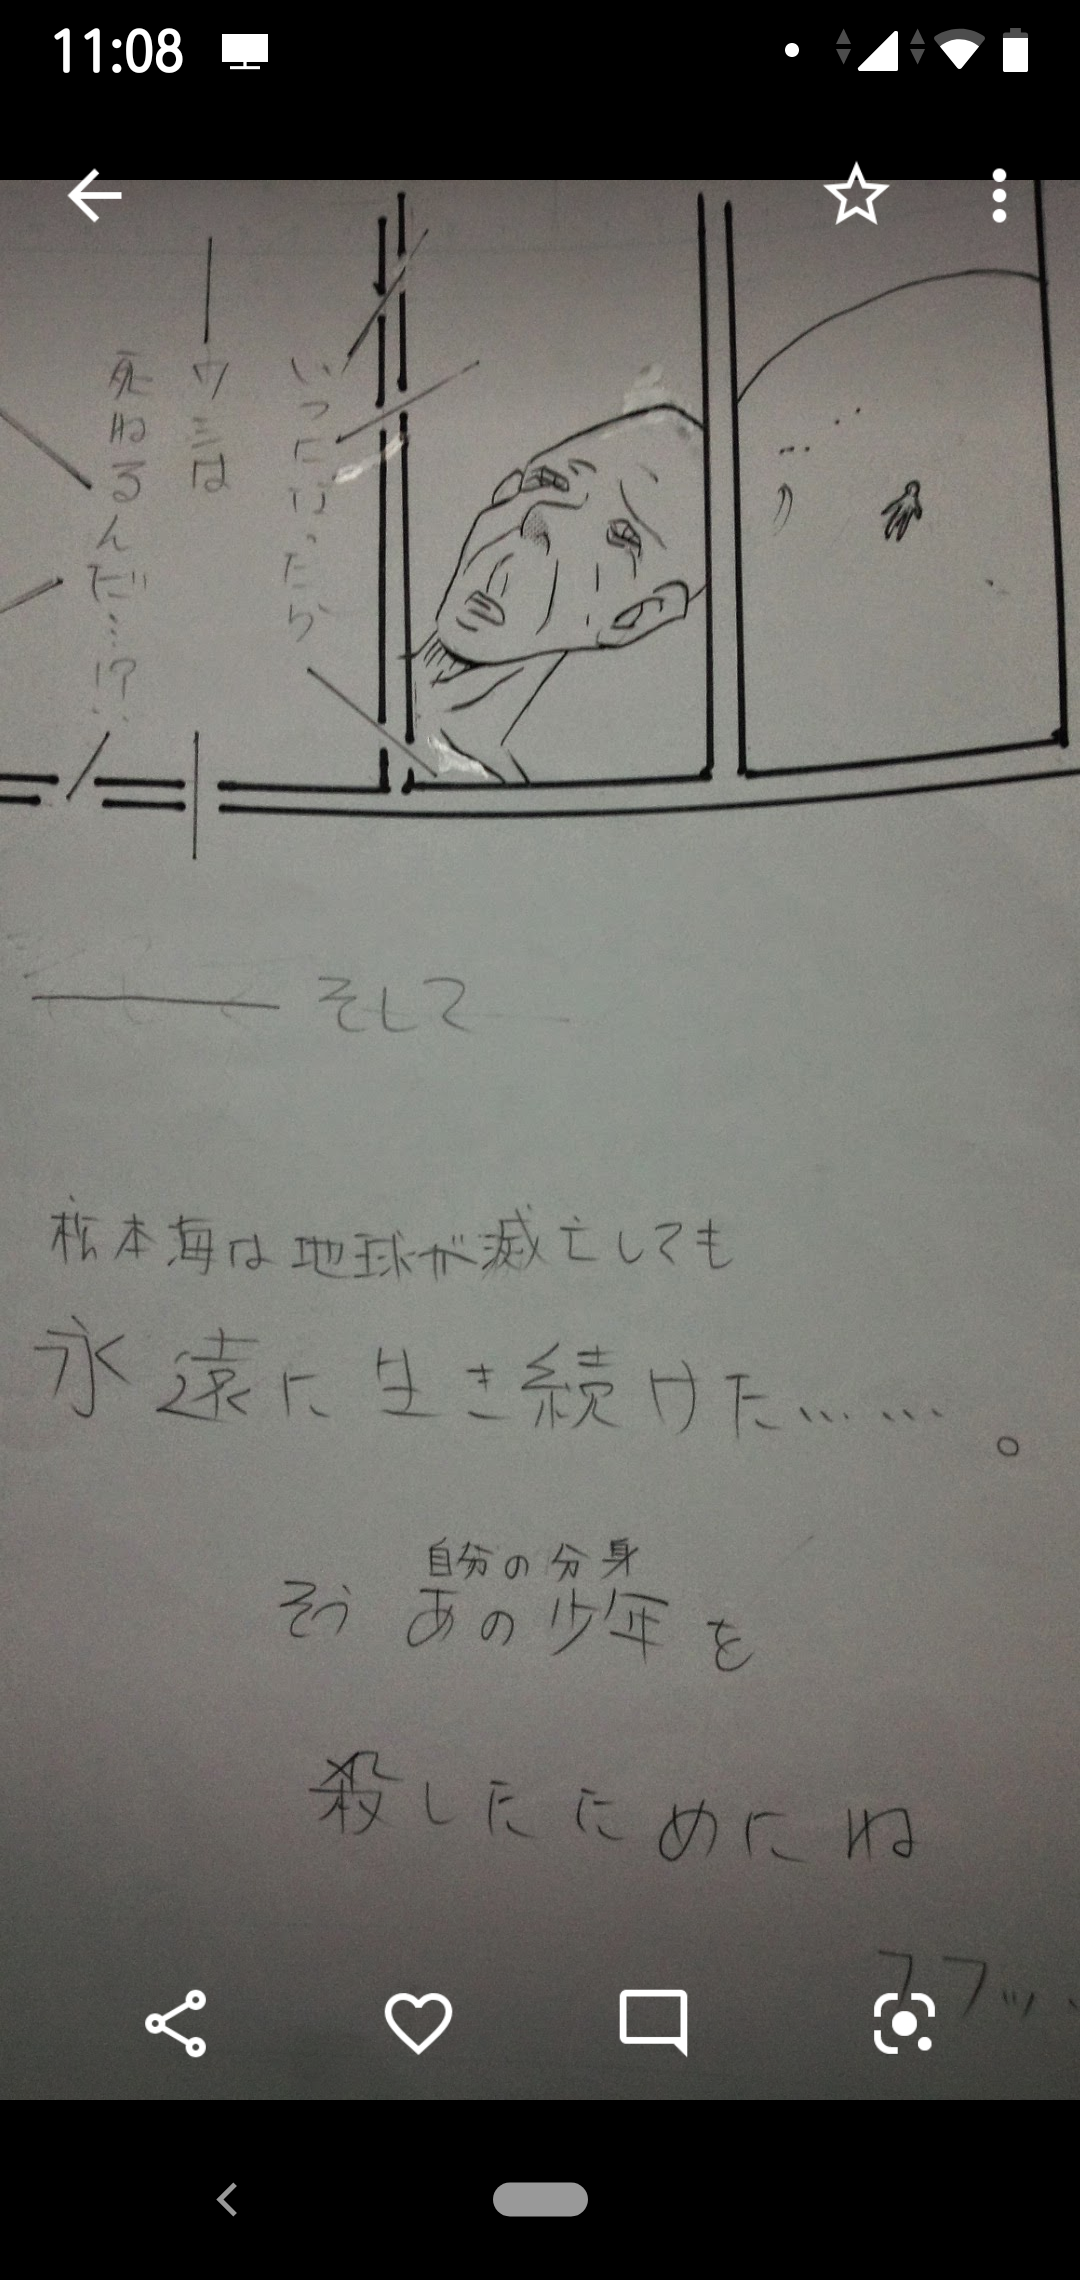 11:08
いつになったら
ウミは
死ねるんだ…!?
そして
松本海は地球が滅亡しても
永遠に生き続けた……。
自分の分身
そう あの少年を
殺したためにね
フフッ